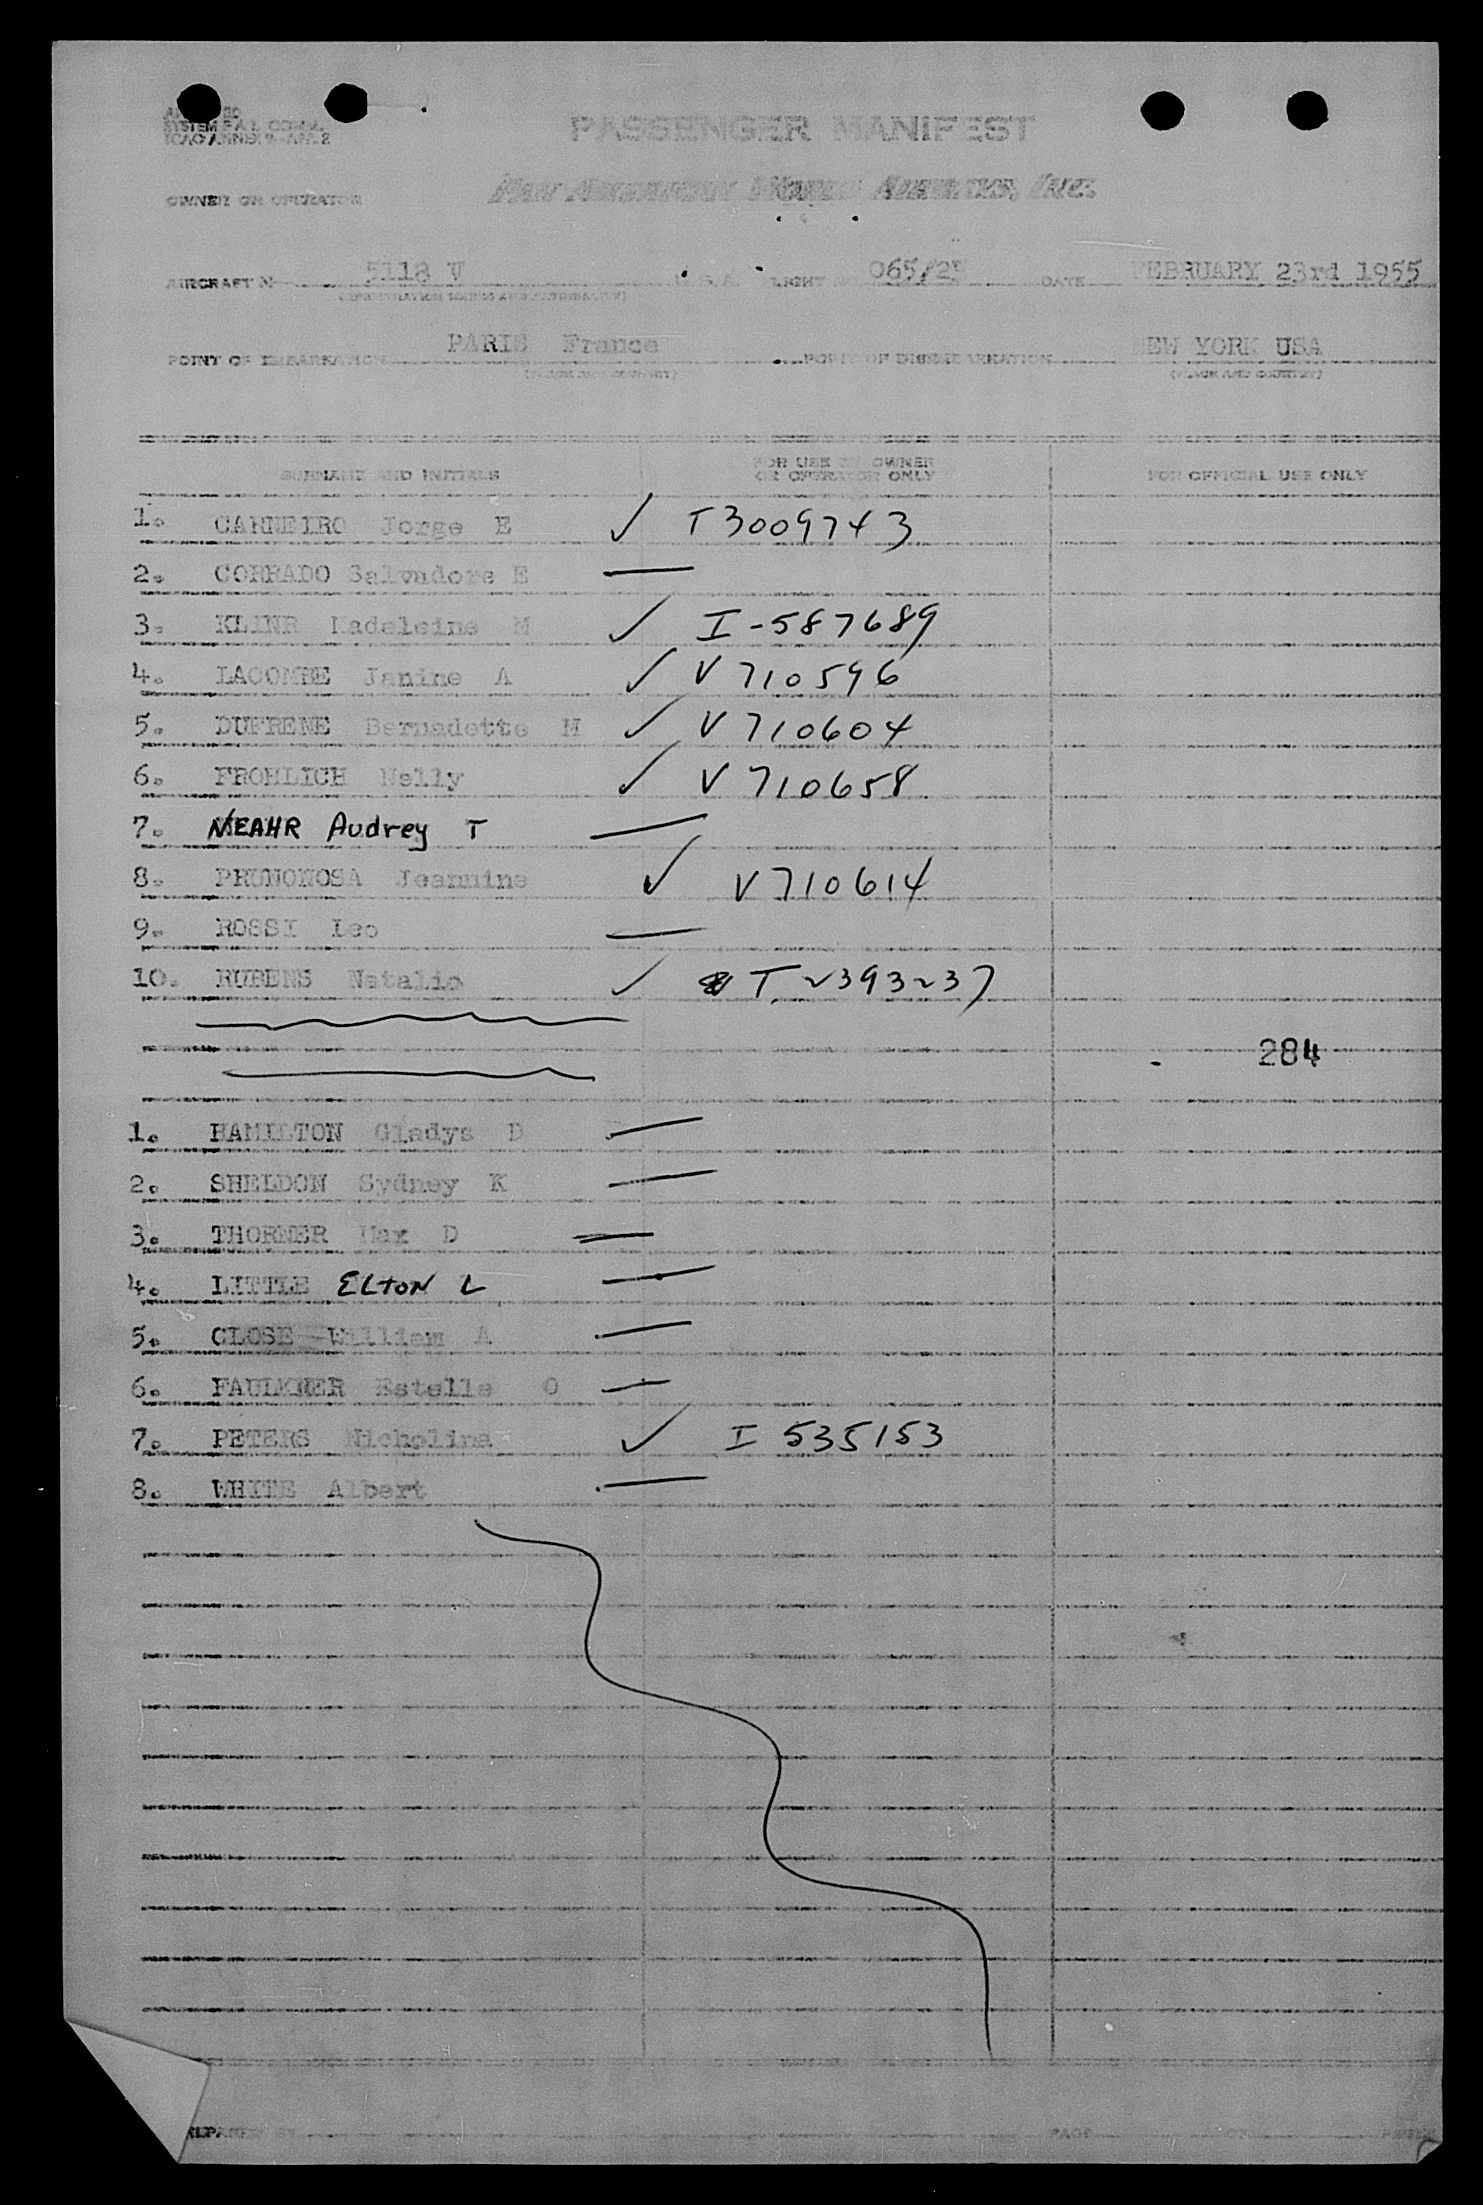 PASSENGER MANIFEST
OWNER OR OPERATOR
PAN AMERICAN WORLD AIRWAYS, INC.
AIRCRAFT N 5118 V U.S.A. FLIGHT 065/23 DATE FEBRUARY 23rd 1955
POINT OF EMBARKATION PARIS France POINT OF DISEMBARKATION NEW YORK USA
(PLACE AND COUNTRY) (PLACE AND COUNTRY)
SURNAME AND INITIALS FOR USE BY OWNER OR OPERATOR ONLY FOR OFFICIAL USE ONLY
1. CARNEIRO Jorge E ✓ T3009743
2. CORRADO Salvadore E —
3. KLINE Madeleine M ✓ I-587689
4. LACOMBE Janine A ✓ V710596
5. DUFRENE Bernadette M ✓ V710604
6. FROHLICH Nelly ✓ V710658
7. NEAHR Audrey T —
8. PRUNONOSA Jeannine ✓ V710614
9. ROSSI Leo —
10. RUBENS Natalio ✓ T 2393237
284
1. HAMILTON Gladys D —
2. SHELDON Sydney K —
3. THORNER Max D —
4. LITTLE ELTON L —
5. CLOSE William A —
6. FAULKNER Estelle O —
7. PETERS Nicholina ✓ I 535153
8. WHITE Albert —
PREPARED BY PAGE OF PAGES